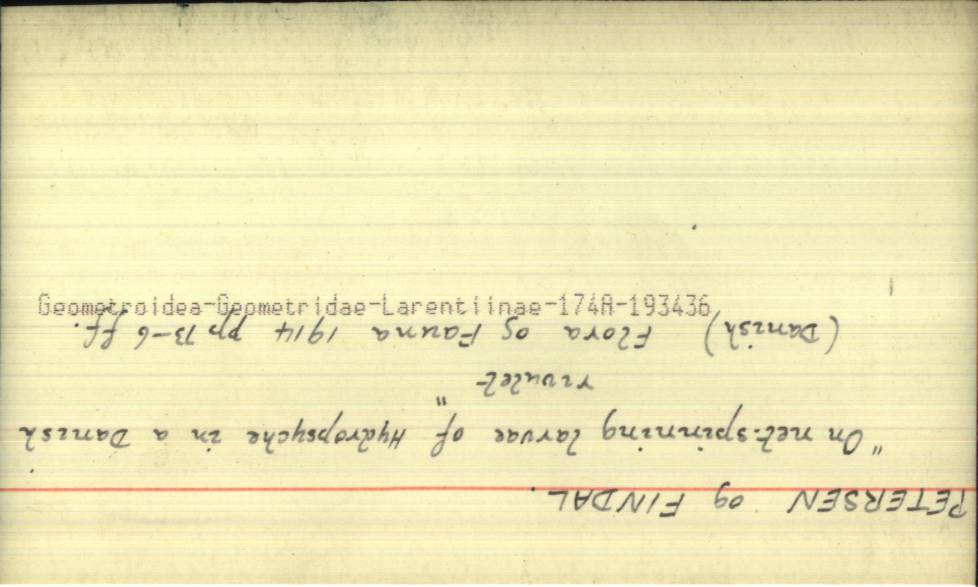 PETERSEN og FINDAL.
"On net-spinning larvae of Hydropsyche in a Danish
rivulet"
(Danish) Flora og Fauna 1914 pp 73-6 ff.
Geometroidea-Geometridae-Larentiinae-174A-193436